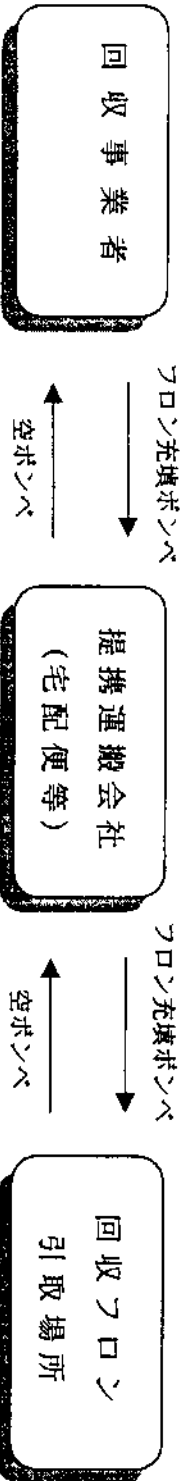 回収事業者
フロン充填ボンベ
空ボンベ
提携運搬会社
(宅配便等)
フロン充填ボンベ
空ボンベ
回収フロン
引取場所